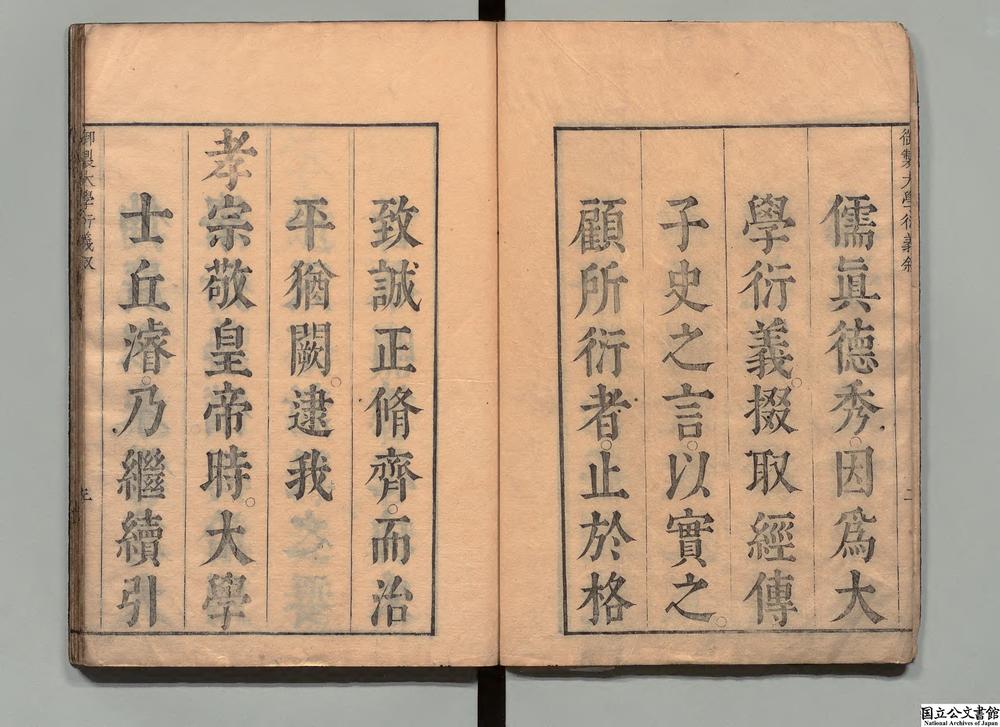 御製大學衍義叙
二
儒眞德秀。因爲大
學衍義。掇取經傳
子史之言。以實之。
顧所衍者。止於格
致誠正脩齊。而治
平猶闕。逮我
孝宗敬皇帝時。大學
士丘濬。乃繼續引
御製大學衍義叙
三
国立公文書館
National Archives of Japan